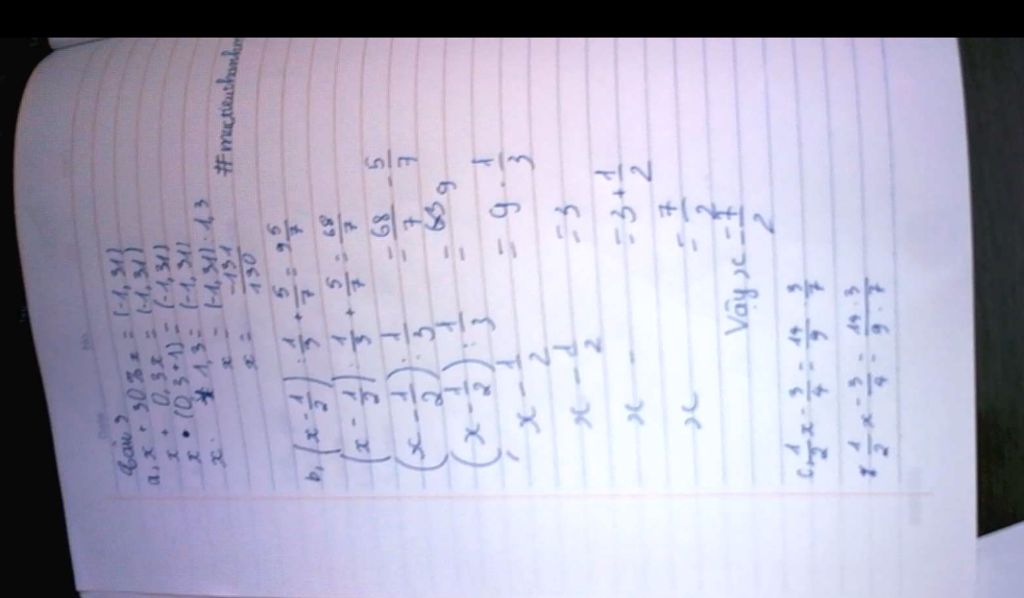 Bài 2
a, x + 30% x = (-1,31)
x + 0,3x = (-1,31)
x • (0,3+1) = (-1,31)
x. 1,3 = (-1,31)
x = (-1,31) : 1,3
x = -131/130
b, (x - 1/2) : 1/3 + 5/7 = 9 5/7
(x - 1/2) : 1/3 + 5/7 = 68/7
(x - 1/2) : 1/3 = 68/7 - 5/7
(x - 1/2) : 1/3 = 9
x - 1/2 = 9 . 1/3
x - 1/2 = 3
x = 3 + 1/2
x = 7/2
Vậy x = 7/2
c, 1/2 x - 3/4 = 14/9 . 3/7
1/2 x - 3/4 = 14 . 3/9 . 7